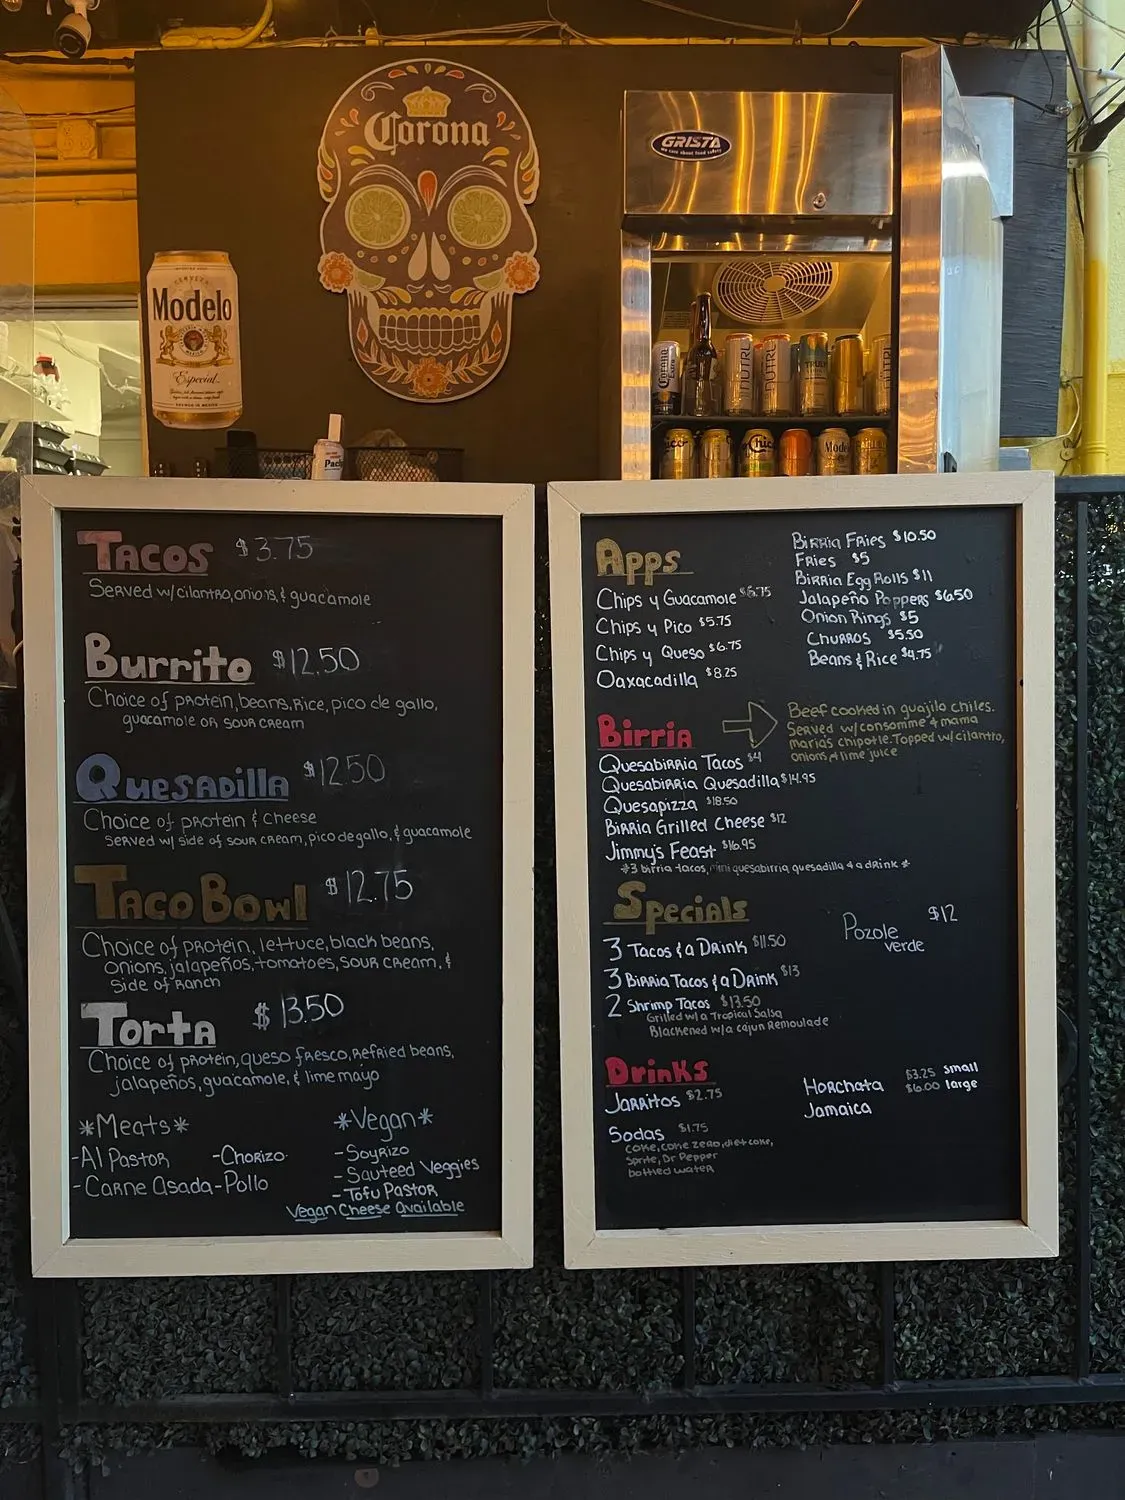 Corona
GRISTA
we care about food safety
Modelo
Especial
Corona
NUTRL
NUTRL
TRULY
Chico
Modelo
TACOS $3.75
Served w/cilantro, onions, & guacamole
Burrito $12.50
Choice of protein, beans, Rice, pico de gallo,
guacamole or sour cream
Quesadilla $12.50
Choice of protein & Cheese
Served w/ side of sour cream, pico de gallo, & guacamole
Taco Bowl $12.75
Choice of protein, lettuce, black beans,
onions, jalapeños, tomatoes, sour cream, &
side of Ranch
Torta $13.50
Choice of protein, queso fresco, refried beans,
jalapeños, guacamole, & lime mayo
*Meats*
-Al Pastor -Chorizo
-Carne Asada -Pollo
*Vegan*
-Soyrizo
-Sauteed Veggies
-Tofu Pastor
Vegan Cheese Available
Apps
Chips y Guacamole $6.75
Chips y Pico $5.75
Chips y Queso $6.75
Oaxacadilla $8.25
Birria Fries $10.50
Fries $5
Birria Egg Rolls $11
Jalapeño Poppers $6.50
Onion Rings $5
Churros $5.50
Beans & Rice $4.75
Birria
Beef cooked in guajilo chiles.
Served w/consomme & mama
maria's chipotle. Topped w/cilantro,
onions & lime juice
Quesabirria Tacos $4
Quesabirria Quesadilla $14.95
Quesapizza $18.50
Birria Grilled Cheese $12
Jimmy's Feast $16.95
*3 birria tacos, mini quesabirria quesadilla & a drink*
Specials
3 Tacos & a Drink $11.50
3 Birria Tacos & a Drink $13
2 Shrimp Tacos $13.50
Grilled w/ a Tropical Salsa
Blackened w/a cajun Remoulade
Pozole $12
verde
Drinks
Jarritos $2.75
Sodas $1.75
coke, coke zero, diet coke,
sprite, Dr Pepper
bottled water
Horchata $3.25 small
Jamaica $6.00 large